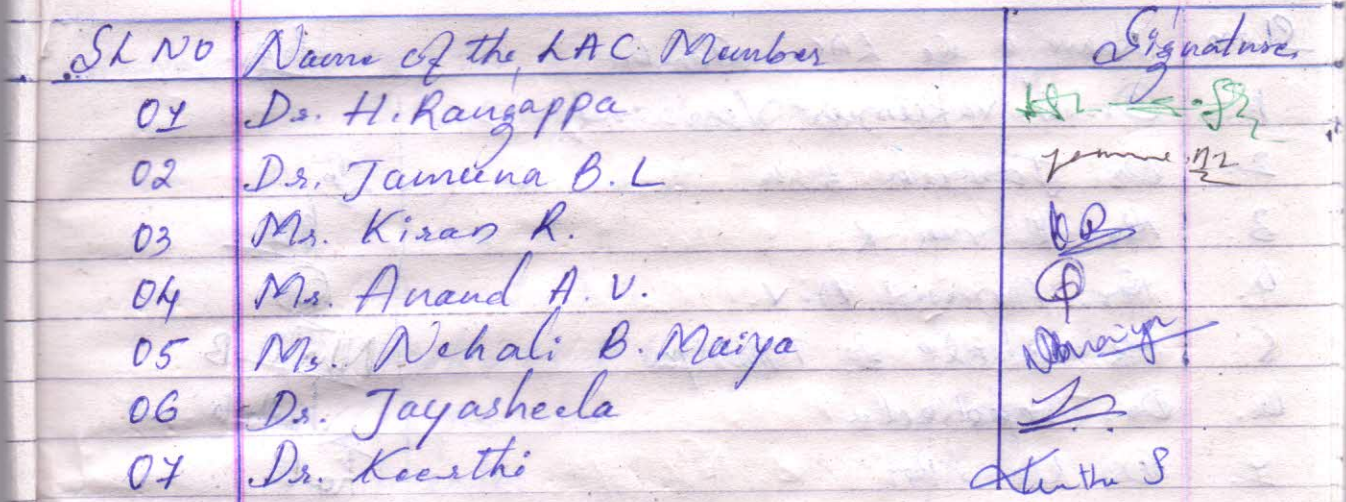 SL NO Name of the LAC Member Signature
01 Dr. H. Rangappa
02 Dr. Jamuna B. L
03 Mr. Kiran R.
04 Mr. Anand A. V.
05 Ms. Nehali B. Maiya NBmaiya
06 Dr. Jayasheela
07 Dr. Keerthi Keerthi S